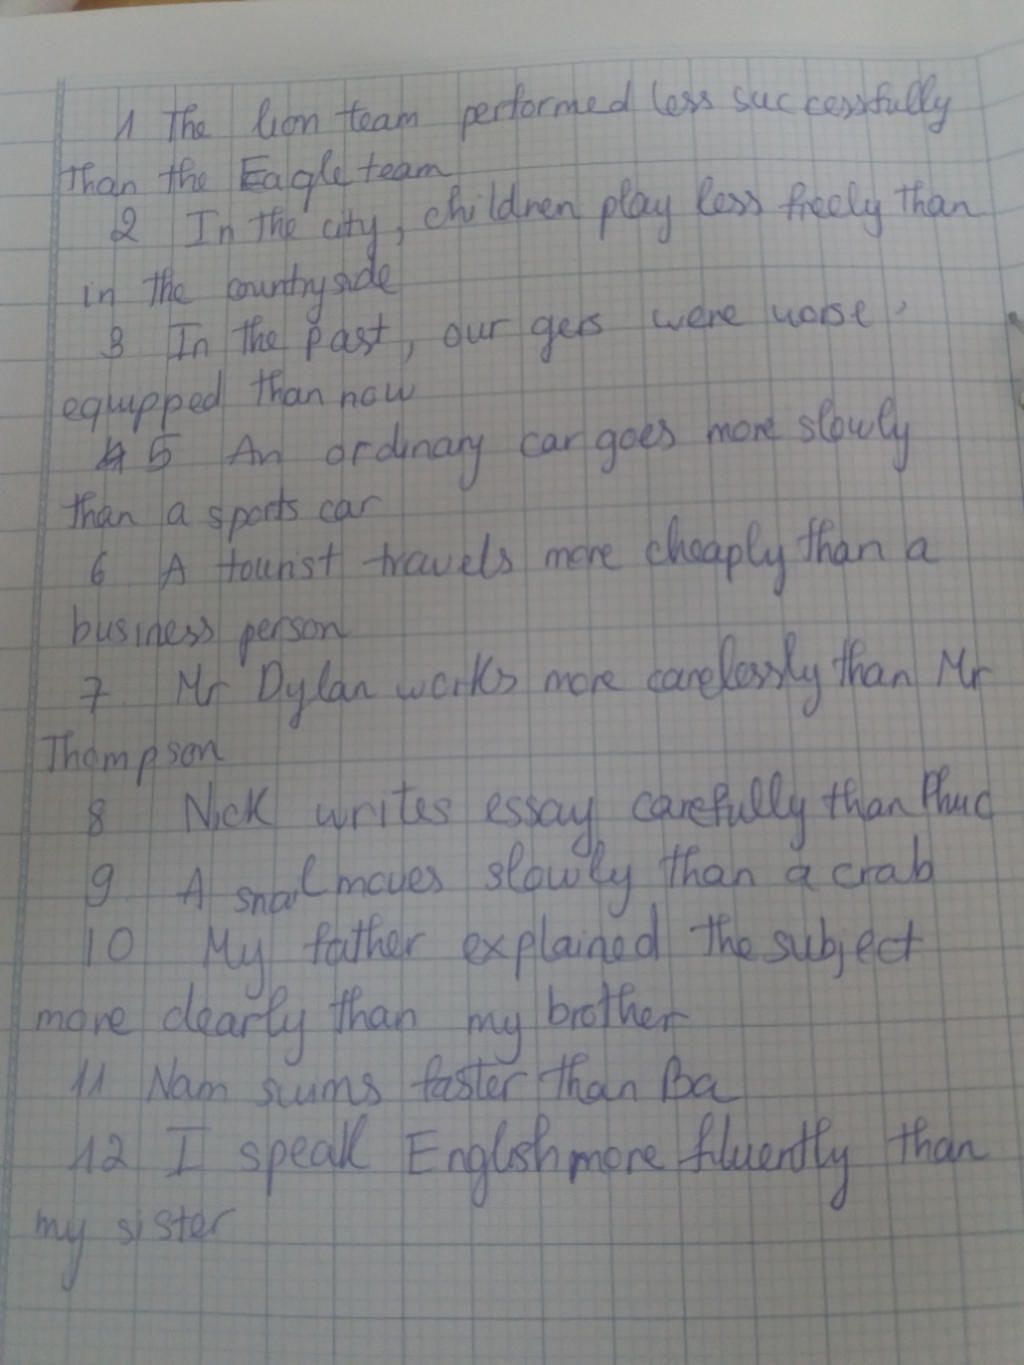 1 The lion team performed less successfully
than the Eagle team
2 In the city, children play less freely than
in the countryside
3 In the past, our gers were worse
equipped than now
5 An ordinary car goes more slowly
than a sports car
6 A tourist travels more cheaply than a
business person
7 Mr Dylan works more carelessly than Mr
Thompson
8 Nick writes essay carefully than Phuc
9 A snail moves slowly than a crab
10 My father explained the subject
more clearly than my brother
11 Nam swims faster than Ba
12 I speak English more fluently than
my sister